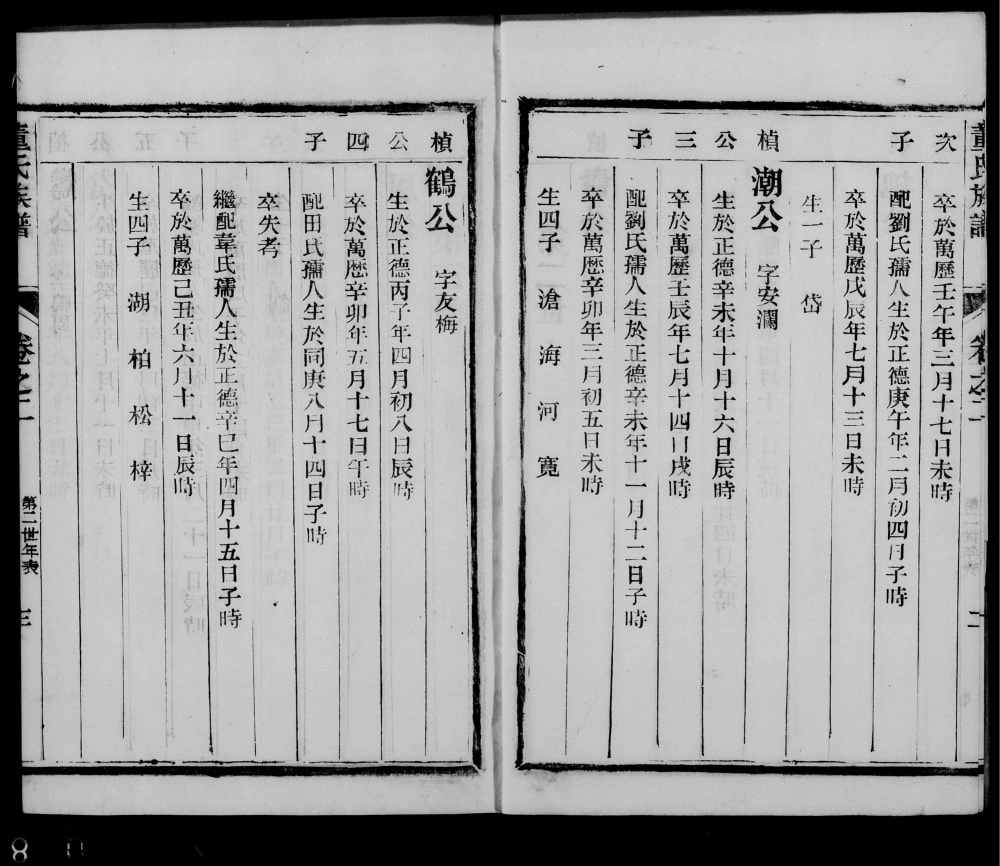 董氏族譜 卷之二 二
次 卒於萬歷壬午年三月十七日未時
子 配劉氏孺人生於正德庚午年二月初四日子時
卒於萬歷戊辰年七月十三日未時
生一子 岱
楨 潮公 字安瀾
公 生於正德辛未年十月十六日辰時
三 卒於萬歷壬辰年七月十四日戌時
子 配劉氏孺人生於正德辛未年十一月十二日子時
卒於萬歷辛卯年三月初五日未時
生四子 滄 海 河 寬
楨 鶴公 字友梅
公 生於正德丙子年四月初八日辰時
四 卒於萬歷辛卯年五月十七日午時
子 配田氏孺人生於同庚八月十四日子時
卒失考
繼配韋氏孺人生於正德辛巳年四月十五日子時
卒於萬歷己丑年六月十一日辰時
生四子 湖 柏 松 梓
董氏族譜 卷之二 第二世年表 三
8